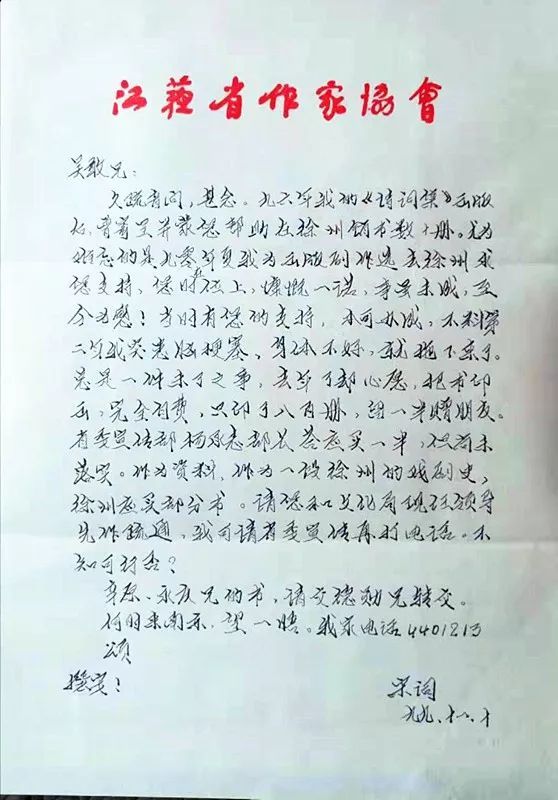 江蘓省作家協會
吴敢兄：
久疏音问，甚念。九六年我的《诗词集》出版
后，曾寄呈并蒙您帮助在徐州销书数十册。尤为
难忘的是九零年夏我为出版剧作选去徐州求
您支持，您时任上，慷慨一诺，事虽未成，至
今为感！当时有您的支持，本可办成，不料第
二年我突患脑梗塞，身体不好，就拖下来了。
总是一件未了之事，去年了却心愿，把书印
出，完全自费，只印了八百册，留一半赠朋友。
省委宣传部杨 志部长答应买一半，但尚未
落实。作为资料，作为一段徐州的戏剧史，
徐州应买部分书。请您和文化局现任领导
先作疏通，我可请省委宣传再打电话。不
知可行否？
辛原、永庆兄的书，请交德勋兄转交。
何时来南京，望一晤。我家电话4401213
颂
撰安！
宋词
九九.十八.十